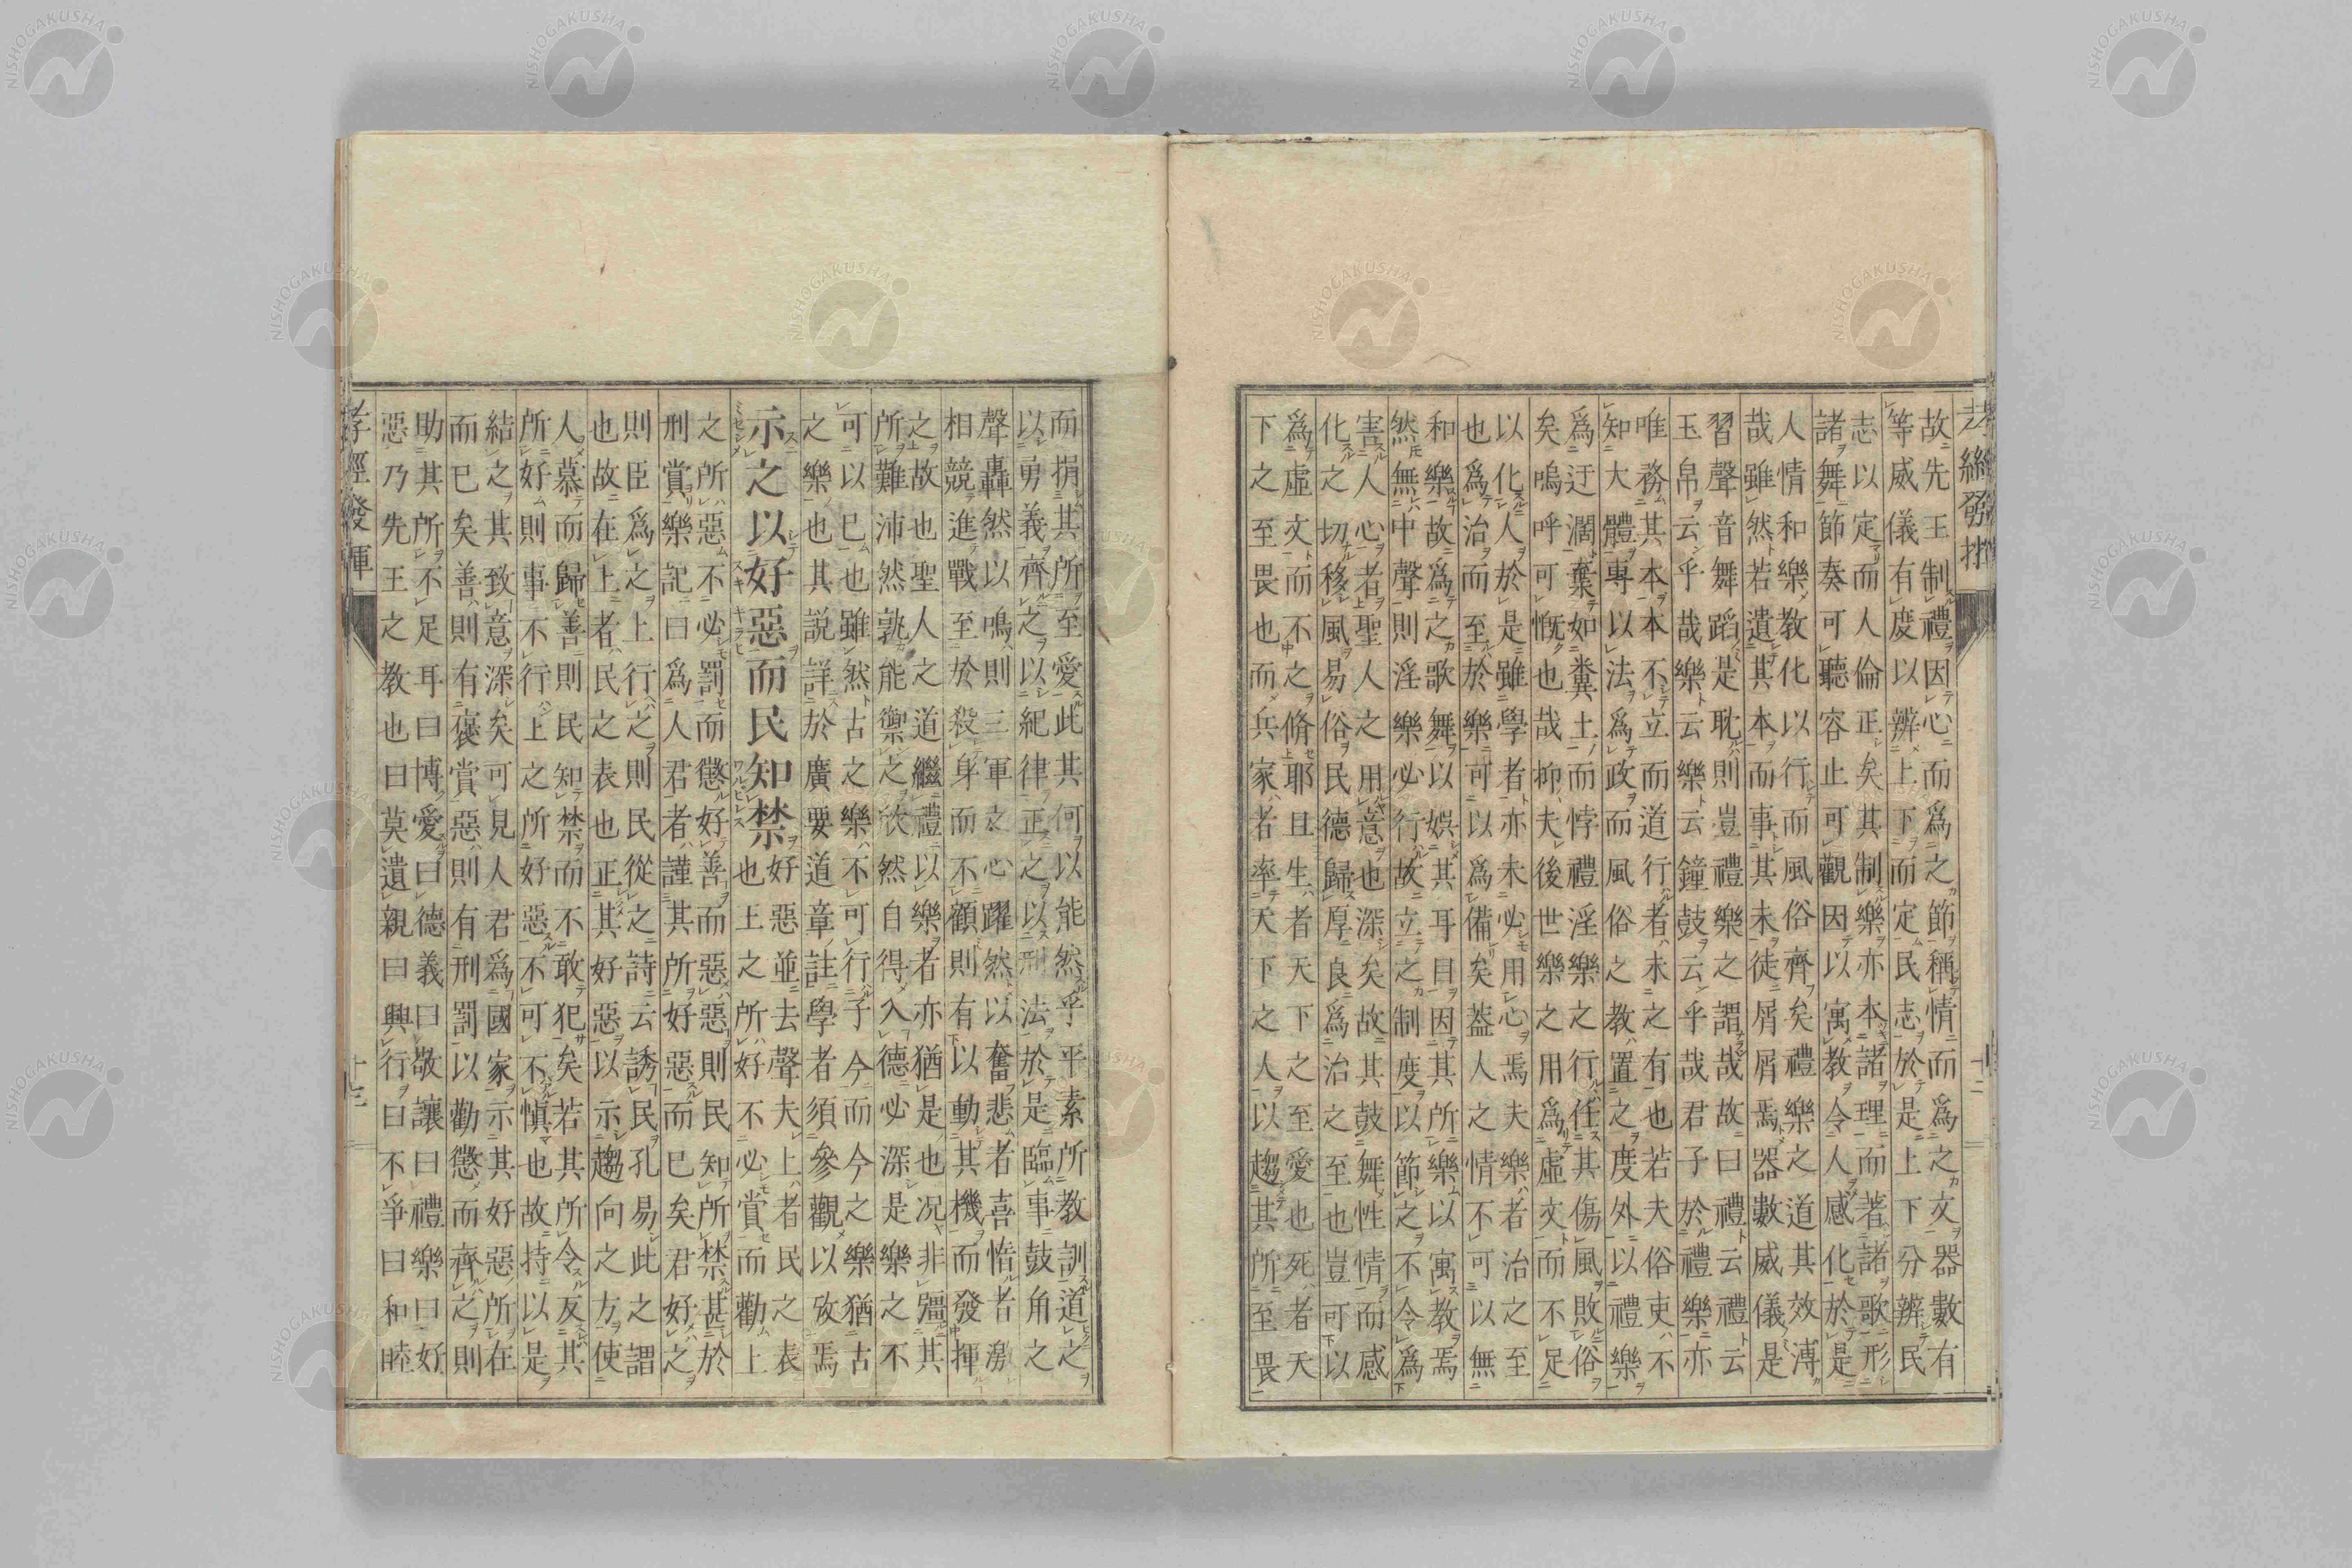 故先王制禮因心而爲之節稱情而爲之文器數有
等威儀有度以辨上下而定民志於是上下分辨民
志以定而人倫正矣其制樂亦本諸理而著諸歌形
諸舞節奏可聽容止可觀因以寓教令人感化於是
人情和樂教化以行而風俗齊矣禮樂之道其效溥
哉雖然若遺其本而事其末徒屑屑焉器數威儀是
習聲音舞蹈是耽則豈禮樂之謂哉故曰禮云禮云
玉帛云乎哉樂云樂云鐘鼓云乎哉君子於禮樂亦
唯務其本本不立而道行者未之有也若夫俗吏不
知大體專以法爲政而風俗之教置之度外以禮樂
爲迂濶棄如糞土而悖禮淫樂之行任其傷風敗俗
矣嗚呼可慨也哉抑夫後世樂之用爲虛文而不足
以化人於是雖學者亦未必用心焉夫樂者治之至
也爲治而至於樂可以爲備矣蓋人之情不可以無
和樂故爲之歌舞以娛其耳目因其所樂以寓教焉
然無中聲則淫樂必行故立之制度以節之不令爲
害人心者聖人之用意也深矣故其鼓舞性情而感
化之切移風易俗民德歸厚良爲治之至也豈可以
爲虛文而不之脩耶且生者天下之至愛也死者天
下之至畏也而兵家者率天下之人以趨其所至畏
而捐其所至愛此其何以能然乎平素所教訓道之
以勇義齊之以紀律正之以刑法於是臨事鼓角之
聲轟然以鳴則三軍之心躍然以奮悲者喜惰者激
相競進戰至於殺身而不顧則有以動其機而發揮
之故也聖人之道繼禮以樂者亦猶是也況非彊其
所難沛然孰能禦之欣然自得入德必深是樂之不
可以已也雖然古之樂不可行于今而今之樂猶古
之樂也其説詳於廣要道章註學者須參觀以攷焉
示之以好惡而民知禁好惡並去聲夫上者民之表
也王之所好不必賞而勸上
之所惡不必罰而懲好善而惡惡則民知所禁甚於
刑賞樂記曰爲人君者謹其所好惡而已矣君好之
則臣爲之上行之則民從之詩云誘民孔易此之謂
也故在上者民之表也正其好惡以示趨向之方使
人慕而歸善則民知禁而不敢犯矣若其所令反其
所好則事不行上之所好惡不可不愼也故持以是
結之其致意深矣可見人君爲國家示其好惡所在
而已矣善則有褒賞惡則有刑罰以勸懲而齊之則
助其所不足耳曰博愛曰德義曰敬讓曰禮樂曰好
惡乃先王之教也曰莫遺親曰興行曰不爭曰和睦
孝經發揮
十二
NISHOGAKUSHA